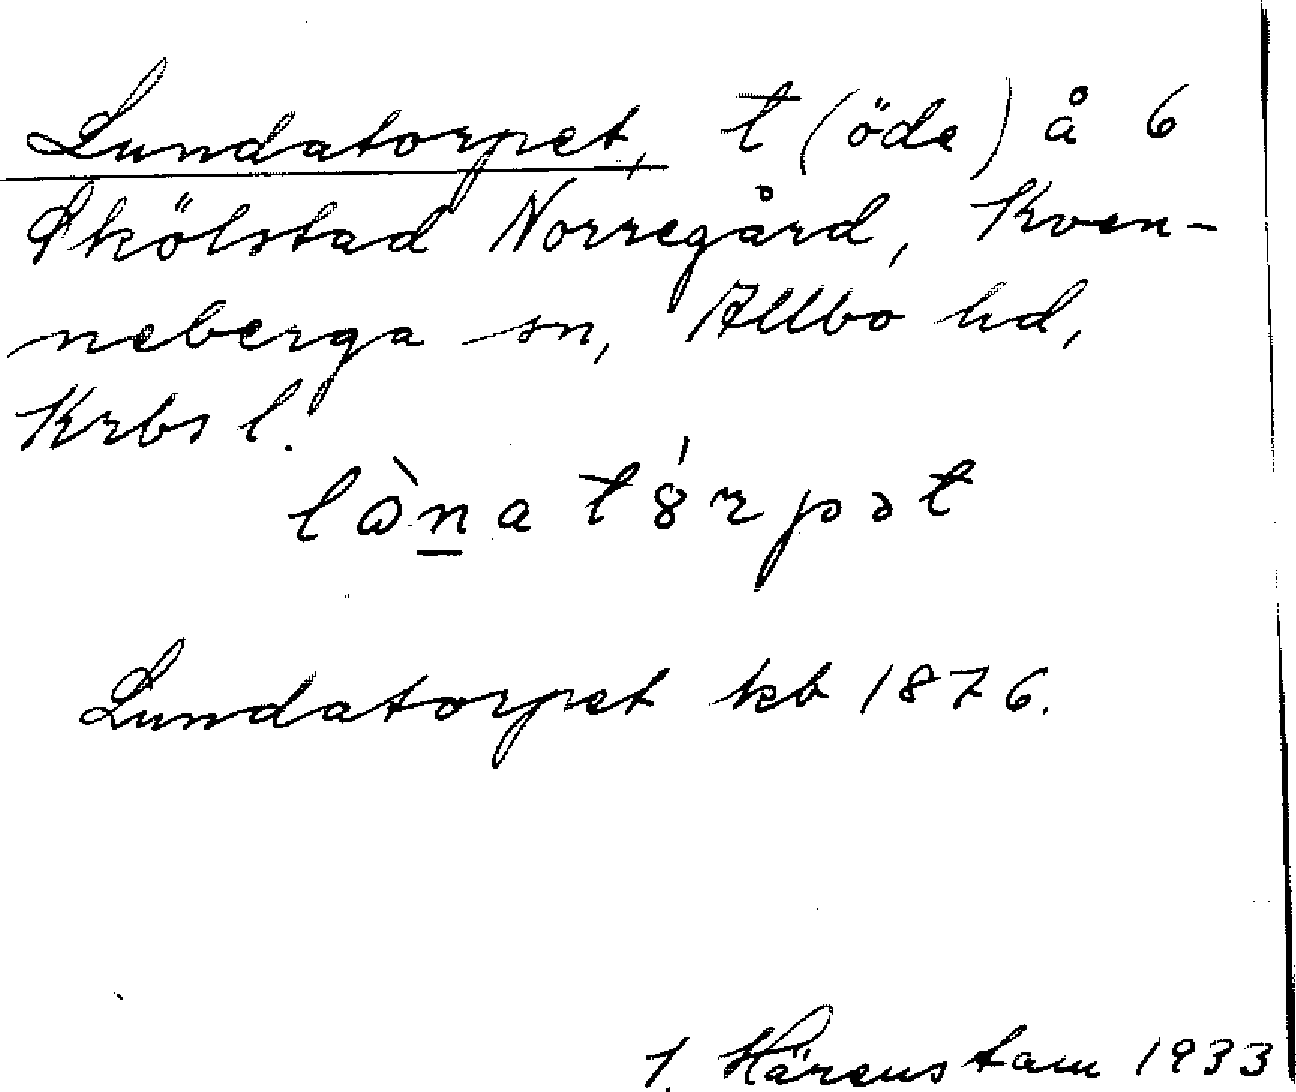 Lundatorpet, t (öde) å 6
Skölstad Norregård, Kven-
neberga sn, Allbo hd,
Krbs l.
lὼn̲a tȣ́rpət
Lundatorpet kb 1876.
J. Härenstam 1933